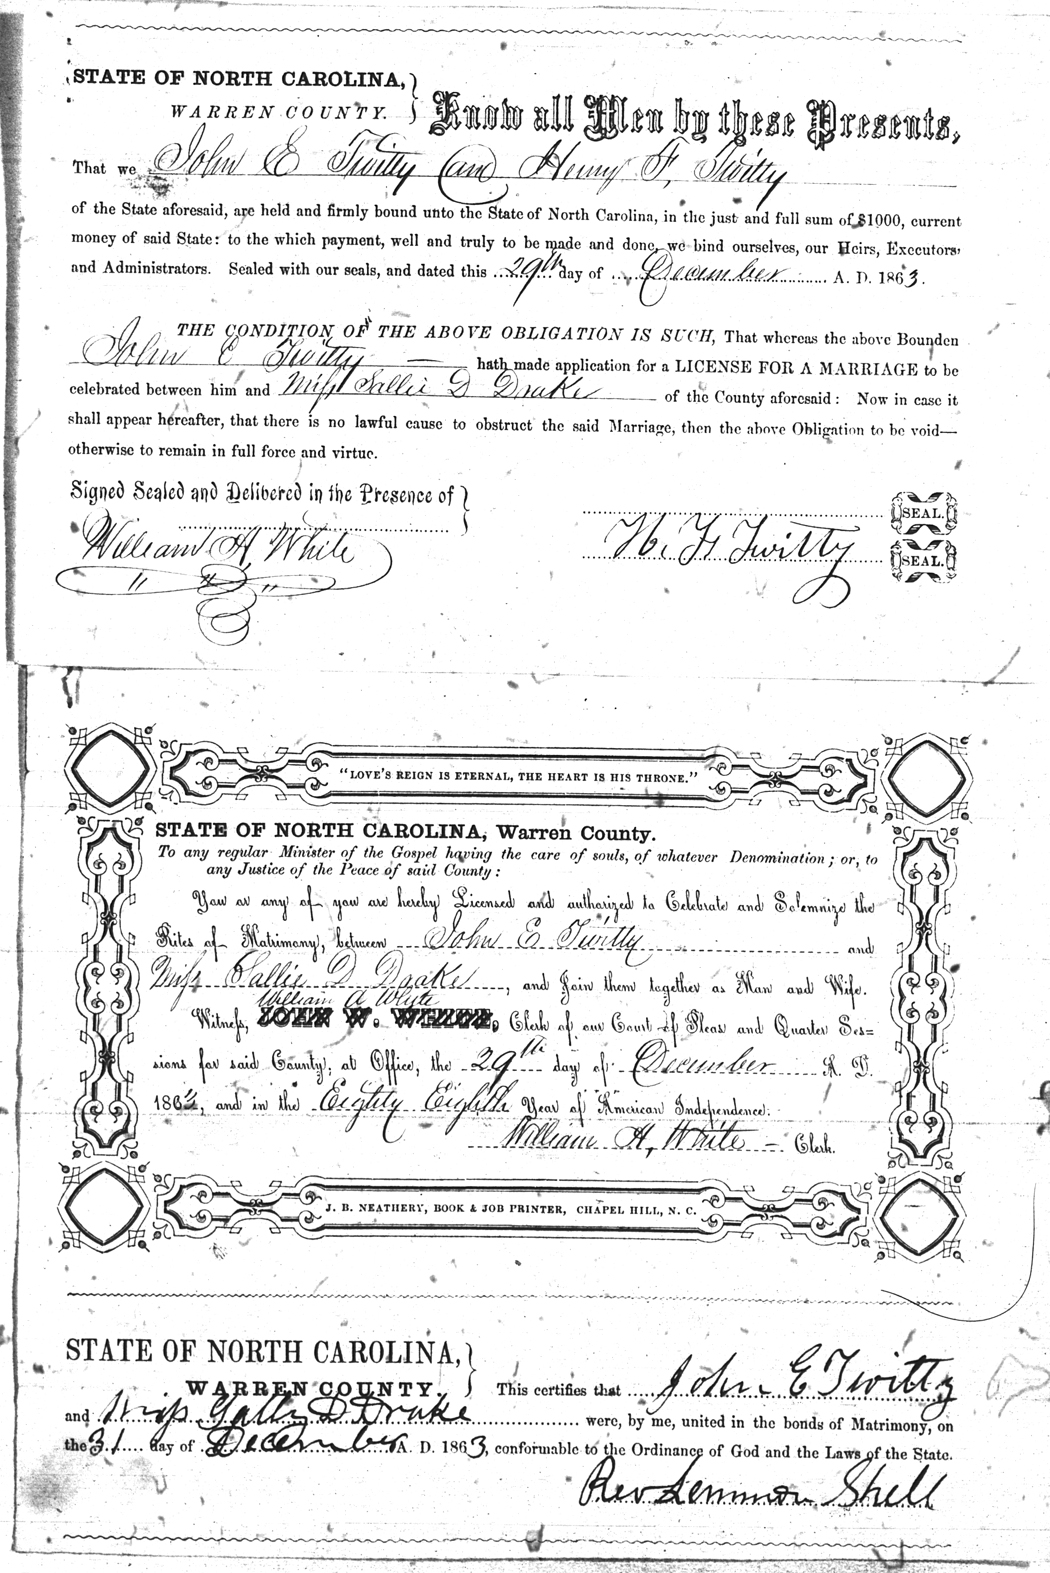 STATE OF NORTH CAROLINA,
WARREN COUNTY.
Know all Men by these Presents,
That we John E Twitty and Henry F. Twitty
of the State aforesaid, are held and firmly bound unto the State of North Carolina, in the just and full sum of $1000, current
money of said State: to the which payment, well and truly to be made and done, we bind ourselves, our Heirs, Executors
and Administrators. Sealed with our seals, and dated this 29th day of December A. D. 1863.
THE CONDITION OF THE ABOVE OBLIGATION IS SUCH, That whereas the above Bounden
John E Twitty hath made application for a LICENSE FOR A MARRIAGE to be
celebrated between him and Miss Sallie D Drake of the County aforesaid: Now in case it
shall appear hereafter, that there is no lawful cause to obstruct the said Marriage, then the above Obligation to be void—
otherwise to remain in full force and virtue.
Signed Sealed and Delivered in the Presence of
SEAL.
William A, White
H. F. Twitty
SEAL.
"LOVE'S REIGN IS ETERNAL, THE HEART IS HIS THRONE."
STATE OF NORTH CAROLINA, Warren County.
To any regular Minister of the Gospel having the care of souls, of whatever Denomination; or, to
any Justice of the Peace of said County:
You or any of you are hereby Licensed and authorized to Celebrate and Solemnize the
Rites of Matrimony, between John E Twitty and
Miss Sallie D Drake, and Join them together as Man and Wife.
William A White
Witness, JOHN W. WHITE, Clerk of our Court of Pleas and Quarter Ses=
sions for said County, at Office, the 29th day of December A. D.
1863, and in the Eighty Eighth Year of American Independence.
William A, White - Clerk.
J. B. NEATHERY, BOOK & JOB PRINTER, CHAPEL HILL, N. C.
STATE OF NORTH CAROLINA,
WARREN COUNTY.
This certifies that John E Twitty
and Miss Sally D Drake were, by me, united in the bonds of Matrimony, on
the 31 day of December A. D. 1863, conformable to the Ordinance of God and the Laws of the State.
Rev Lemmon Shell